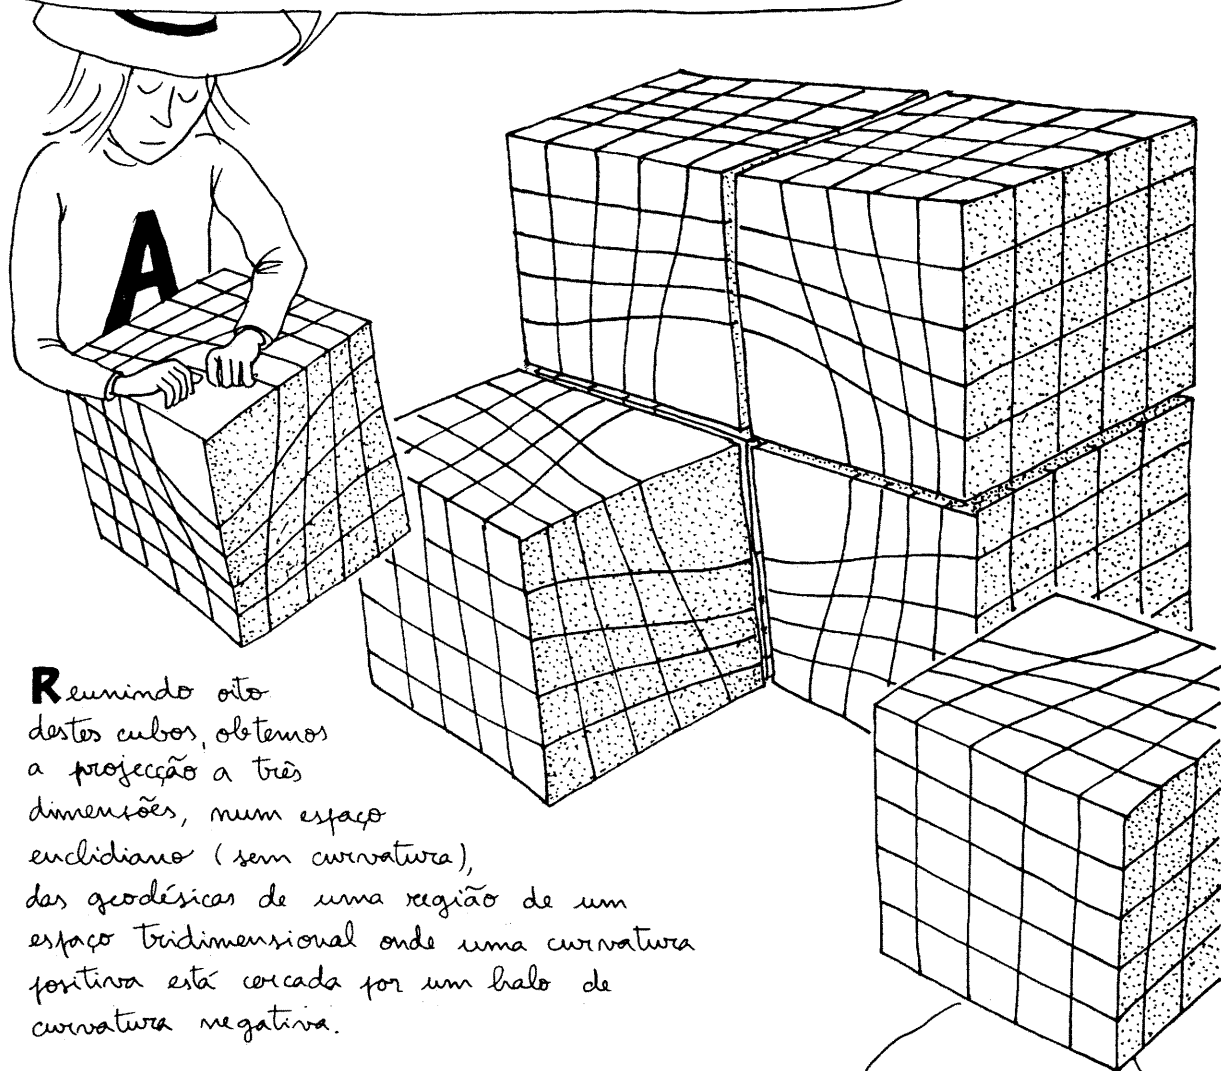 A
Reunindo oito
destes cubos, obtemos
a projecção a três
dimensões, num espaço
euclidiano (sem curvatura),
das geodésicas de uma região de um
espaço tridimensional onde uma curvatura
positiva está cercada por um halo de
curvatura negativa.